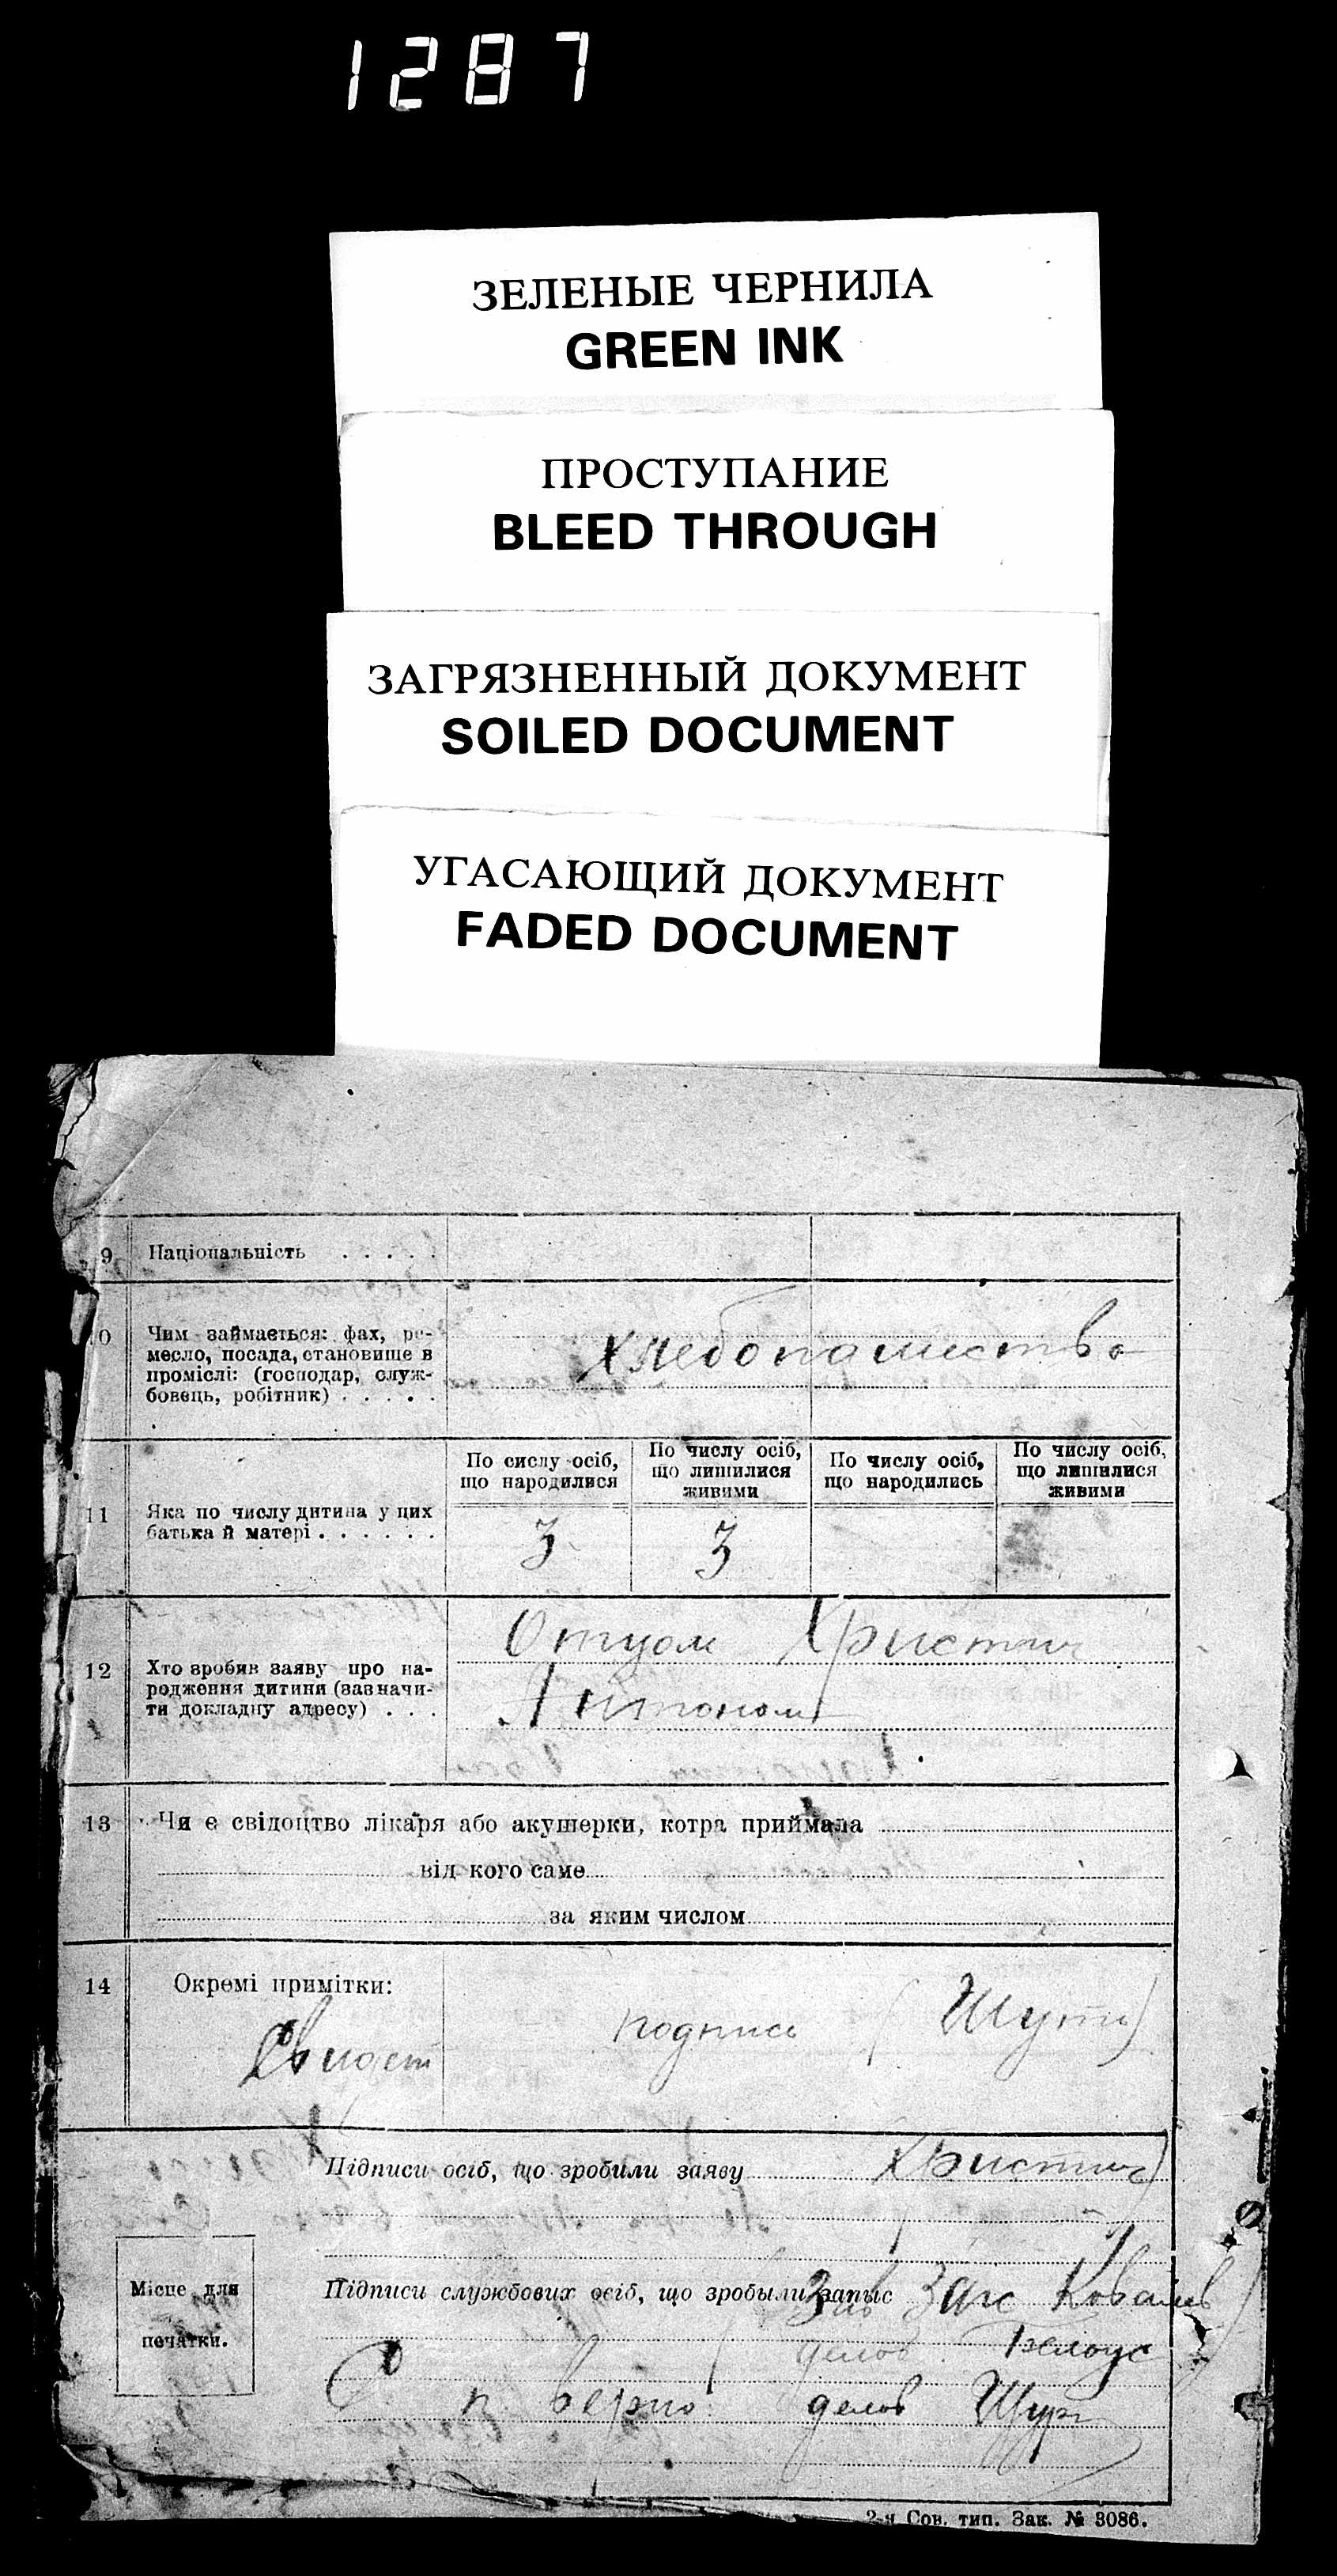 1287
ЗЕЛЕНЫЕ ЧЕРНИЛА
GREEN INK
ПРОСТУПАНИЕ
BLEED THROUGH
ЗАГРЯЗНЕННЫЙ ДОКУМЕНТ
SOILED DOCUMENT
УГАСАЮЩИЙ ДОКУМЕНТ
FADED DOCUMENT
9 Національність . . . . .
0 Чим займається: фах, ре-
месло, посада, становище в
промислі: (господар, служ-
бовець, робітник) . . . . .
хлебопашество
11 Яка по числу дитина у цих
батька й матері . . . . . .
По сислу осіб,
що народилися
По числу осіб,
що лишилися
живими
По числу осіб,
що народились
По числу осіб,
що лишилися
живими
3 3
12 Хто зробив заяву про на-
родження дитини (зазначи-
ти докладну адресу) . . .
Отцом Христич
Антоном
13 Чи є свідоцтво лікаря або акушерки, котра приймала
від кого саме
за яким числом
14 Окремі примітки:
подпись (Шути)
Підписи осіб, що зробили заяву Христич)
Місце для
печатки.
Підписи службових осіб, що зробыли запыс Зав Загс Ковалів)
делов. Белоус
С п верно: делов Щур
2-я Сов. тип. Зак. № 3086.